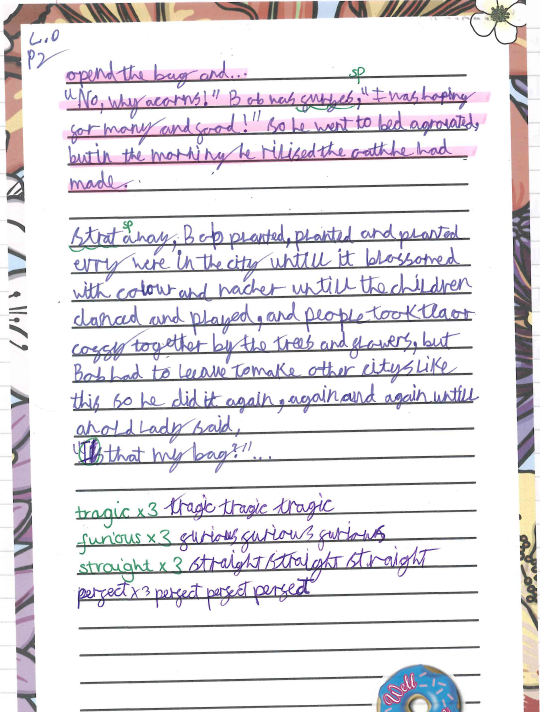 L.O
P2
opend the bag and...
sp
"No, why acorns!" Bob was furios, "I was hoping
for many and good!" So he went to bed agrovated,
but in the morning he rilised the oath he had
made.
sp
Strataway, Bob planted, planted and planted
evry were in the city untill it blossomed
with colour and nacher untill the children
danced and played, and people took tea or
coffy together by the trees and flowers, but
Bob had to leave to make other citys like
this so he did it again, again and again untill
an old Lady said,
"Is that my bag?"...
tragic x3 tragic tragic tragic
furious x3 furious furious furious
straight x3 straight straight straight
perfect x3 perfect perfect perfect
Well